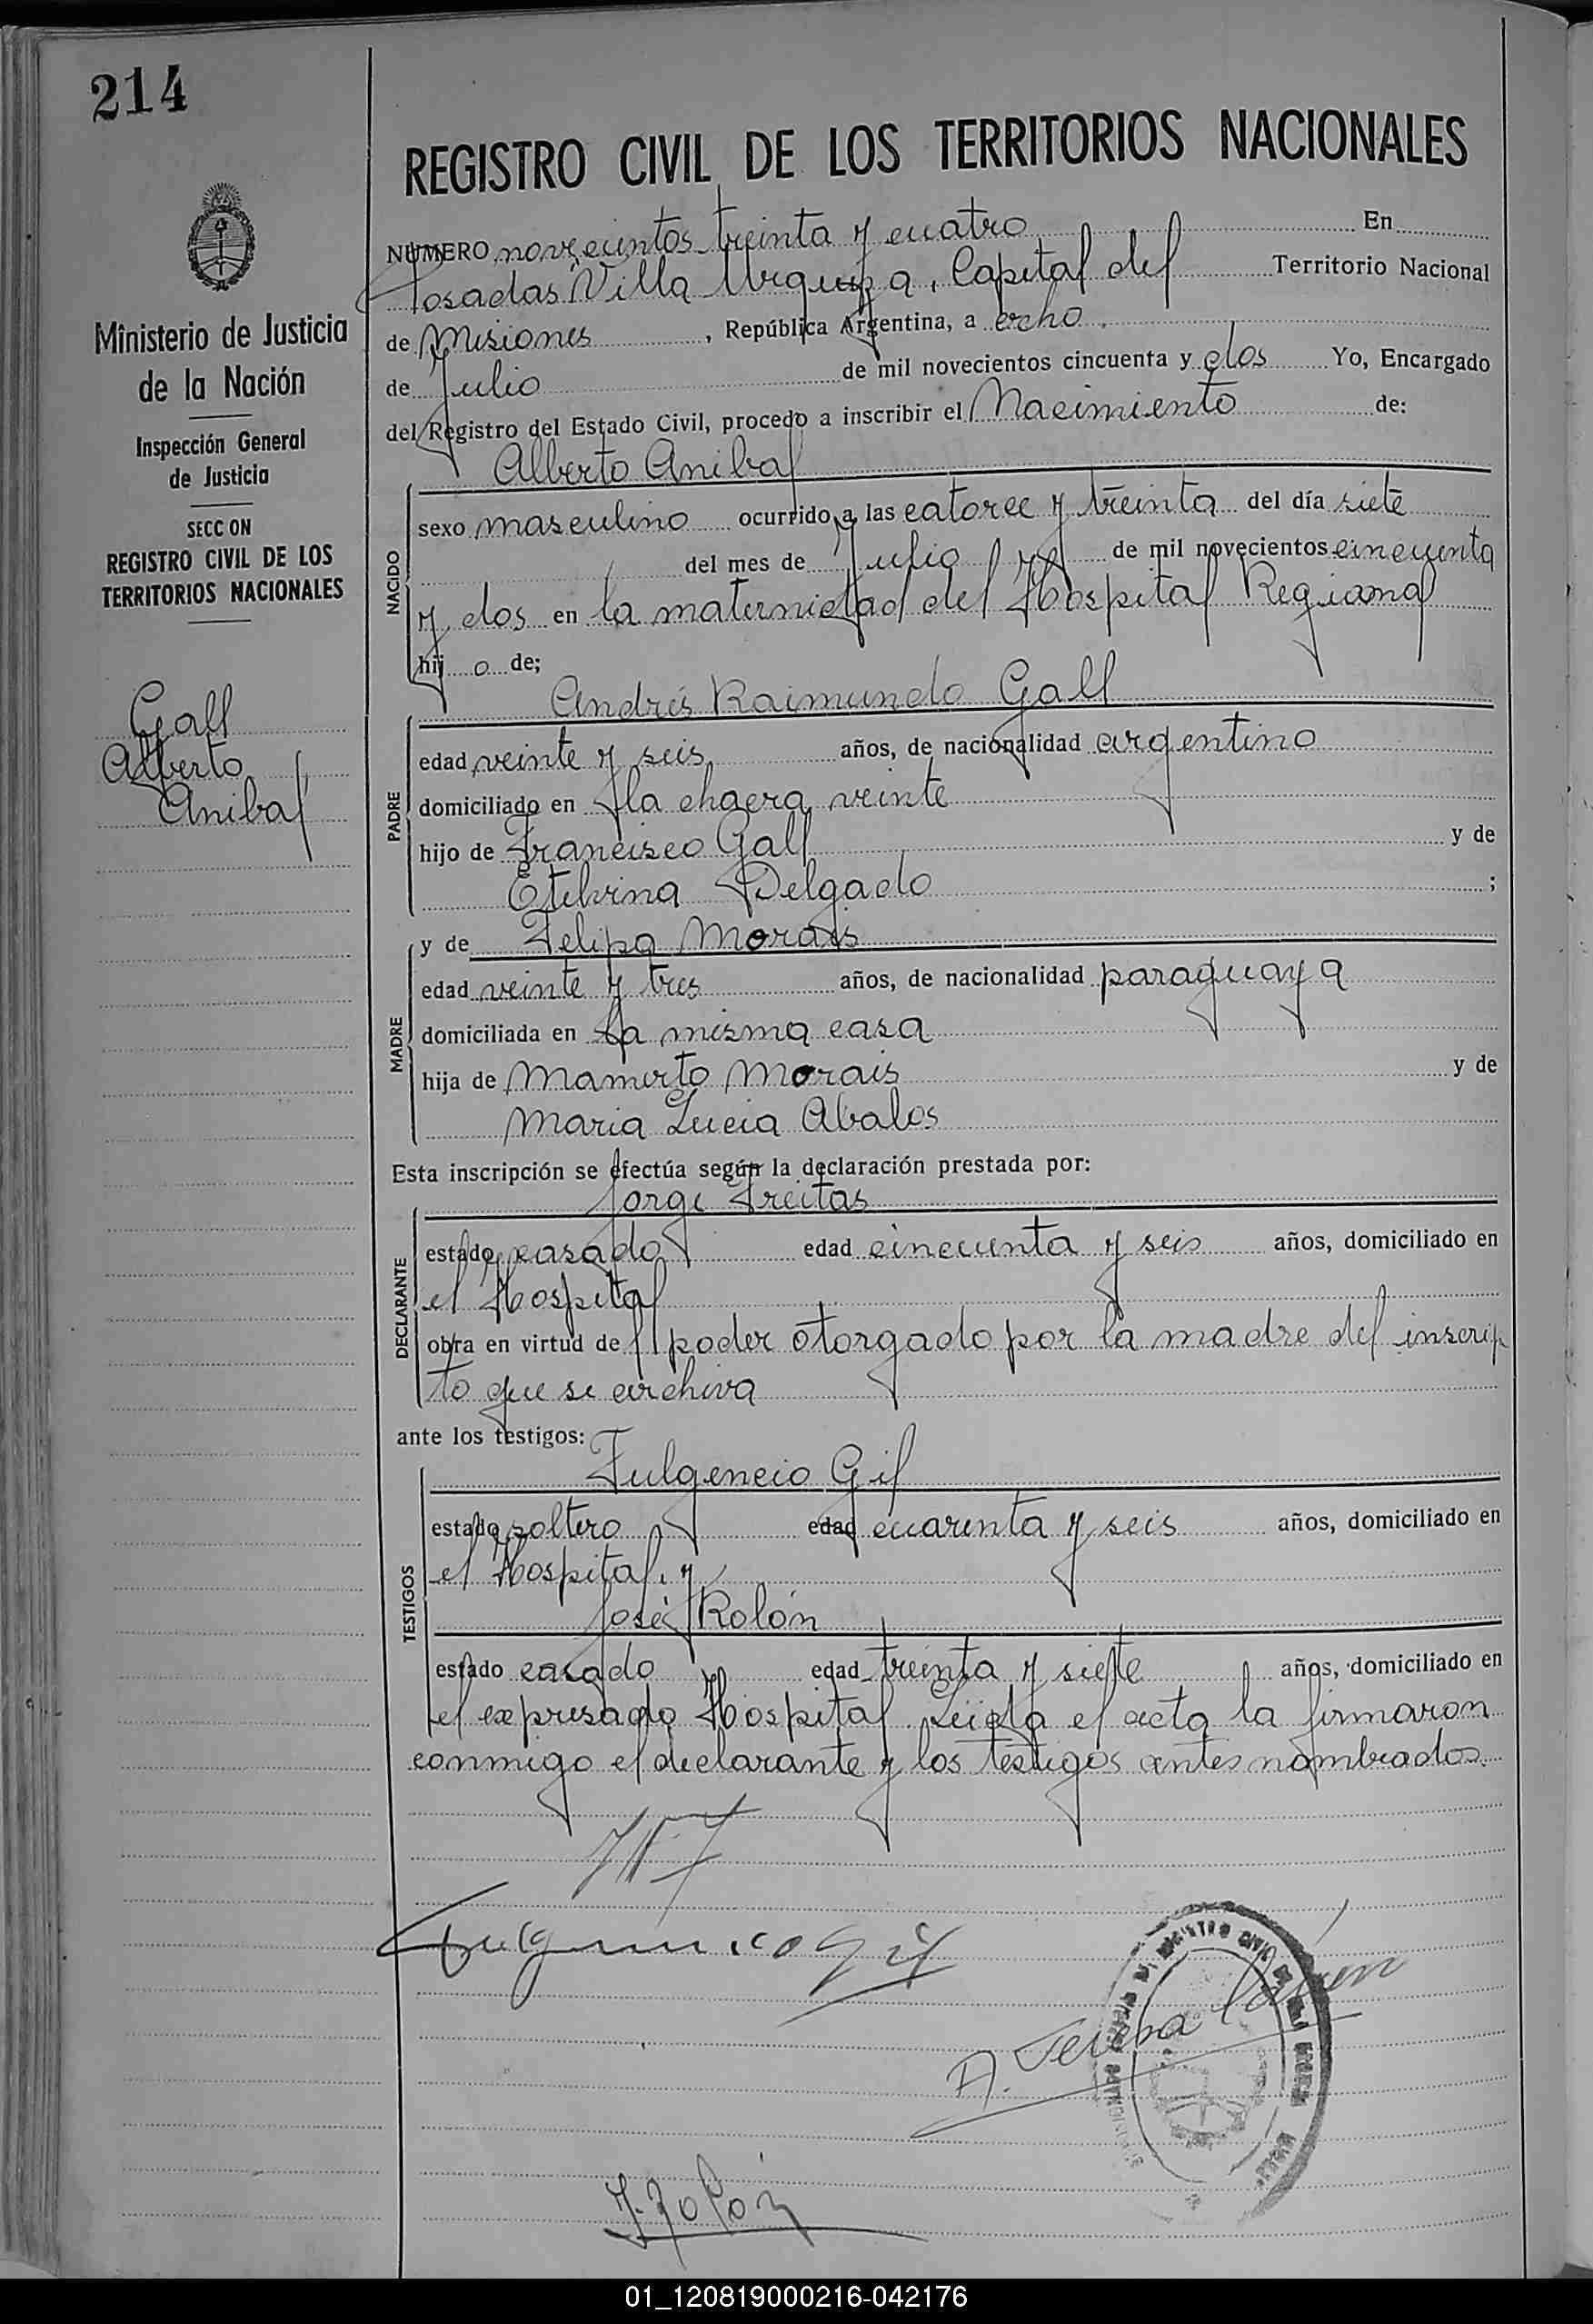 214
REGISTRO CIVIL DE LOS TERRITORIOS NACIONALES
Ministerio de Justicia
de la Nación
Inspección General
de Justicia
SECC ON
REGISTRO CIVIL DE LOS
TERRITORIOS NACIONALES
Gall
Alberto
Anibal
NUMERO novecientos treinta y cuatro En
Posadas Villa Urquiza, Capital del Territorio Nacional
de Misiones, República Argentina, a ocho
de Julio de mil novecientos cincuenta y dos Yo, Encargado
del Registro del Estado Civil, procedo a inscribir el Nacimiento de:
Alberto Anibal
NACIDO
sexo masculino ocurrido a las catorce y treinta del día siete
del mes de Julio de mil novecientos cincuenta
y dos en la maternidad del Hospital Regional
hij o de;
Andrés Raimundo Gall
PADRE
edad veinte y seis años, de nacionalidad argentino
domiciliado en la chacra veinte
hijo de Francisco Gall y de
Etelvina Delgado ;
MADRE
y de Felipa Morais
edad veinte y tres años, de nacionalidad paraguaya
domiciliada en la misma casa
hija de Mamerto Morais y de
Maria Lucia Abalos
Esta inscripción se efectúa según la declaración prestada por:
Jorge Freitas
DECLARANTE
estado casado edad cincuenta y seis años, domiciliado en
el Hospital
obra en virtud del poder otorgado por la madre del inscrip
to que se archiva
ante los testigos:
Fulgencio Gil
TESTIGOS
estado soltero edad cuarenta y seis años, domiciliado en
el Hospital, y
José Rolón
estado casado edad treinta y siete años, domiciliado en
el expresado Hospital. Leida el acta la firmaron
conmigo el declarante y los testigos antes nombrados.
Fulgencio Gil
J. Rolón
01_120819000216-042176